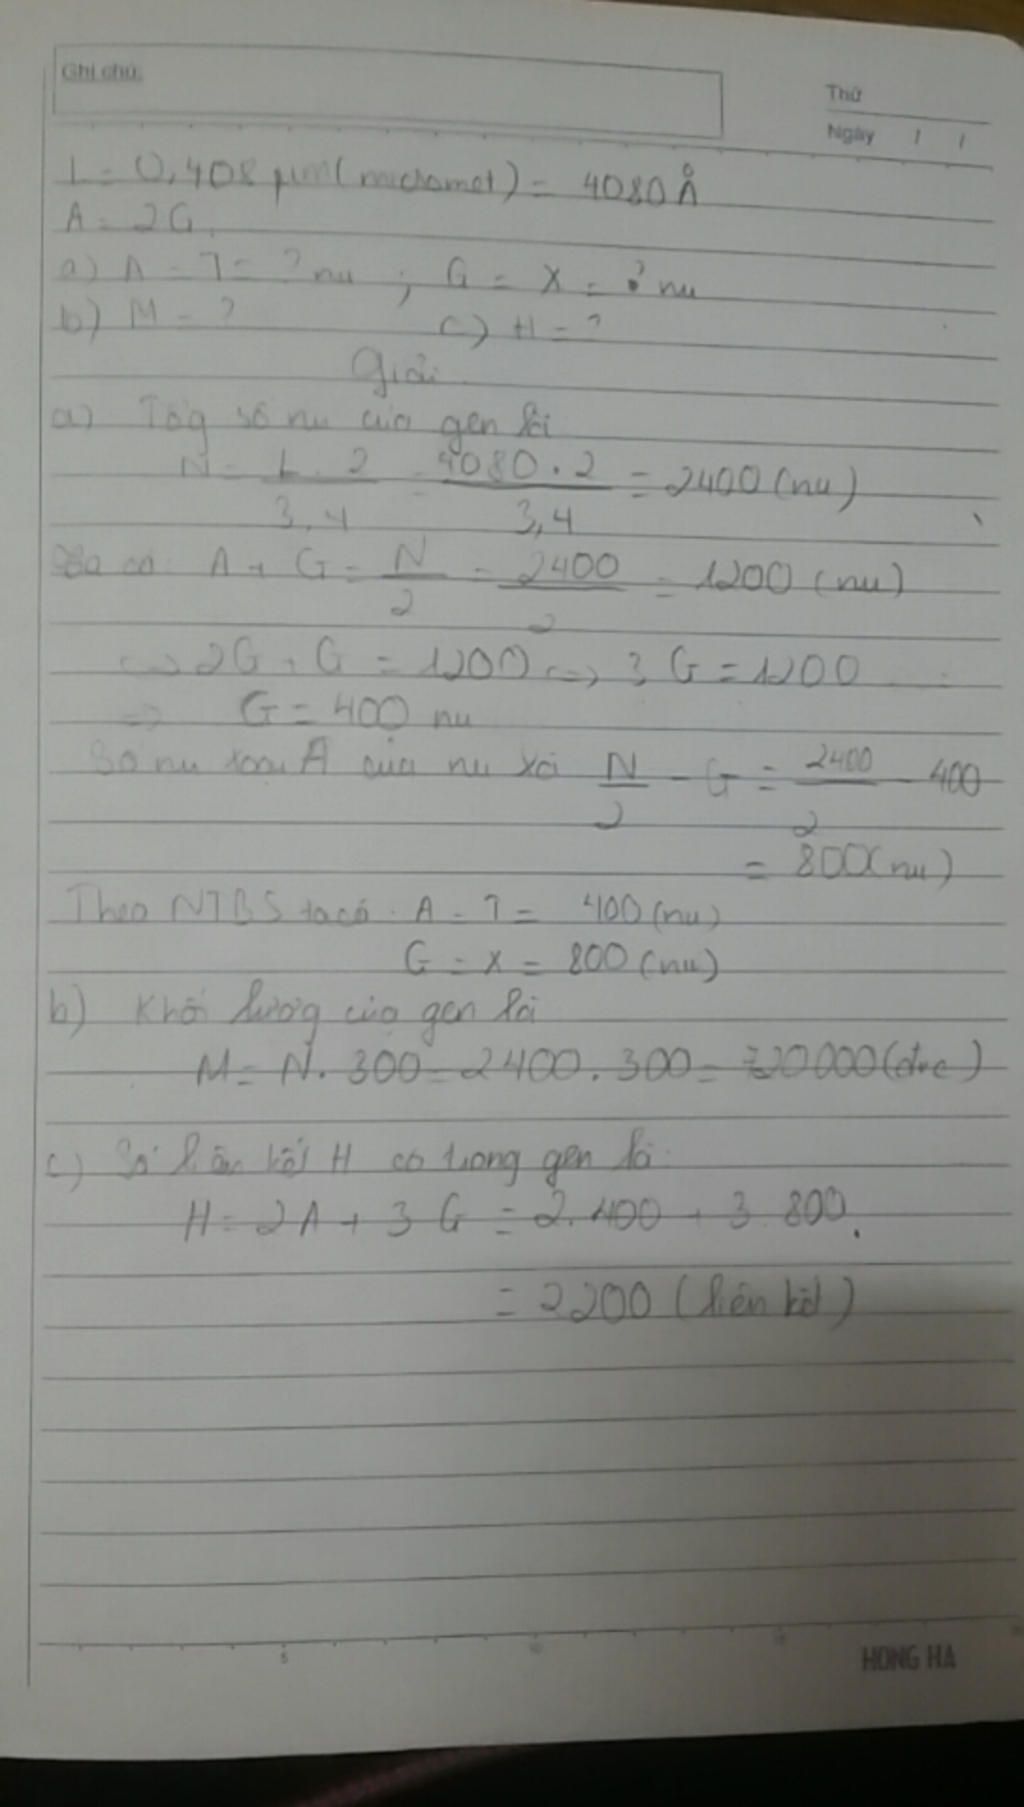 Ghi chú:
Thứ
Ngày / /
L = 0,408 µm (micromet) = 4080 Å
A = 2G.
a) A = T = ? nu ; G = X = ? nu
b) M = ? c) H = ?
Giải
a) Tổg số nu của gen là
N = L . 2 / 3,4 = 4080 . 2 / 3,4 = 2400 (nu)
Ta có: A + G = N / 2 = 2400 / 2 = 1200 (nu)
<=> 2G + G = 1200 <=> 3 G = 1200
=> G = 400 nu
Số nu loại A của nu là N / 2 - G = 2400 / 2 - 400
= 800(nu)
Theo NTBS ta có: A = T = 400 (nu)
G = X = 800 (nu)
b) Khối lượng của gen là
M = N . 300 = 2400 . 300 = 720000 (đvc)
c) Số liên kết H có trong gen là:
H = 2A + 3 G = 2.400 + 3.800
= 2200 (liên kết)
5 10 15
HONG HA